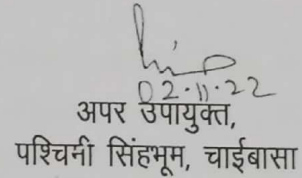 02.11.22
अपर उपायुक्त,
पश्चिमी सिंहभूम, चाईबासा